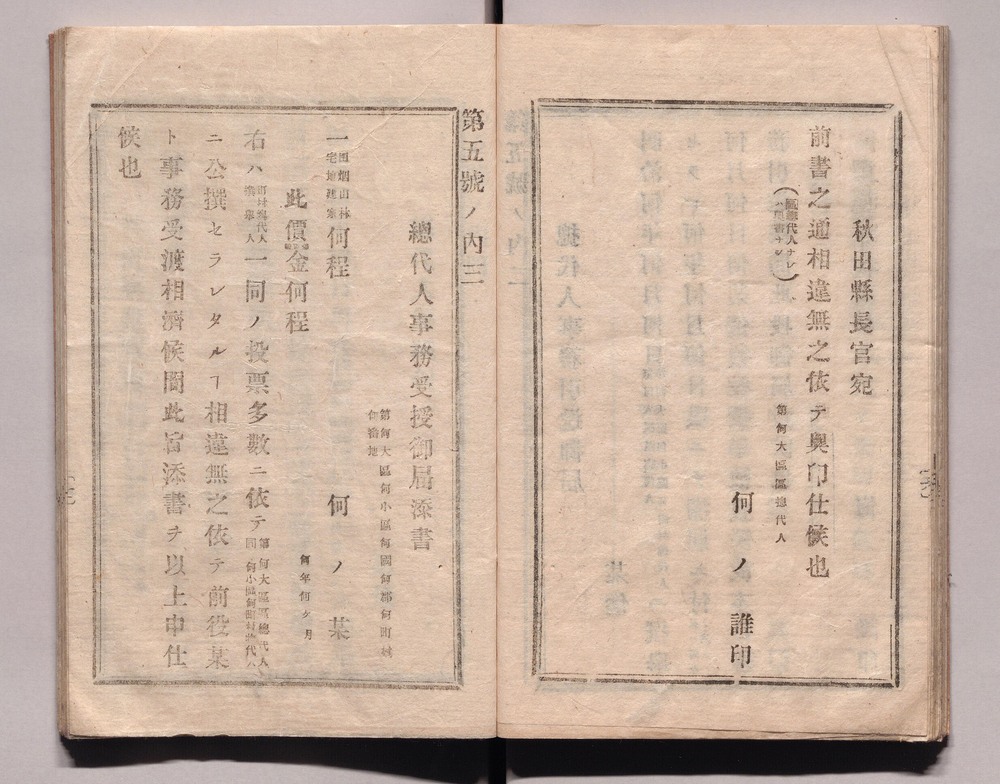 秋田縣長官宛
前書之通相違無之依テ奥印仕候也
(區總代人ナレハ奥書ナシ)
第何大區區總代人
何ノ誰印
第五號ノ內三
總代人事務受授御屆添書
第何大區何小區何國何郡何町村
何番地
何ノ某
何年何ケ月
一田畑山林宅地建家何程
此價金何程
右ハ町村總代人撰擧人一同ノ投票多數ニ依テ第何大區區總代人
ニ公撰セラレタルヿ相違無之依テ前役某
ト事務受渡相濟候間此旨添書ヲ以上申仕
候也